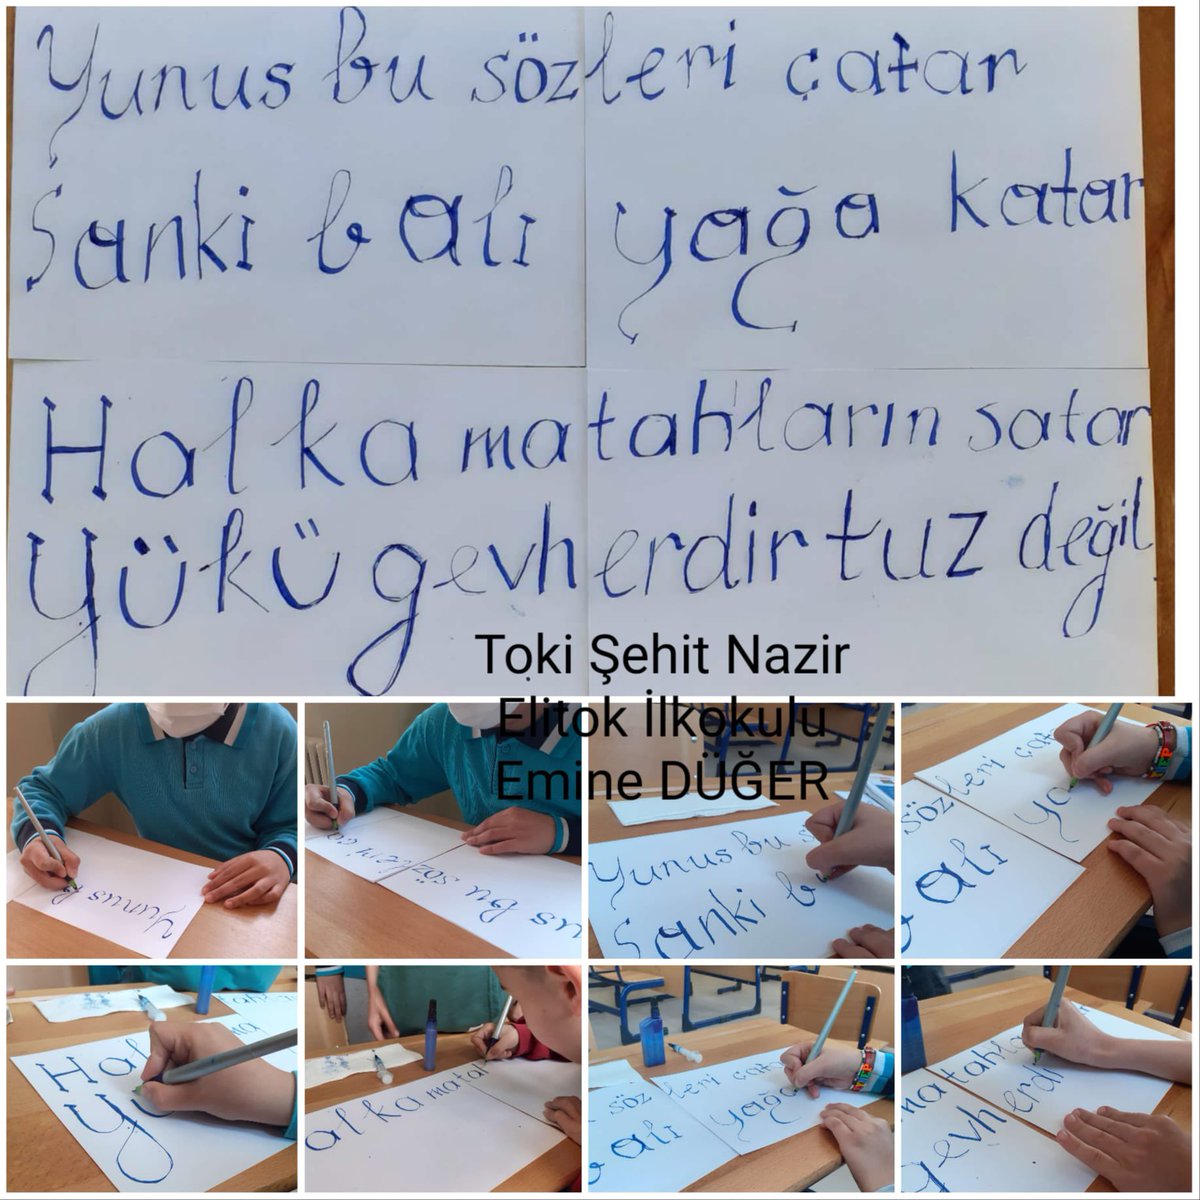 Yunus bu sözleri çatar
Sanki balı yağa katar
Halka matahların satar
Yükü gevherdir tuz değil
Toki Şehit Nazir
Elitok İlkokulu
Emine DÜĞER
Yunus b
us bu sözleri ça
Yunus bu s
Sanki b
sözleri çat
balı
ya
Hal
yü
tah
ma
alka matah
söz leri çatar
balı yağa
ma matahla
gevherdi